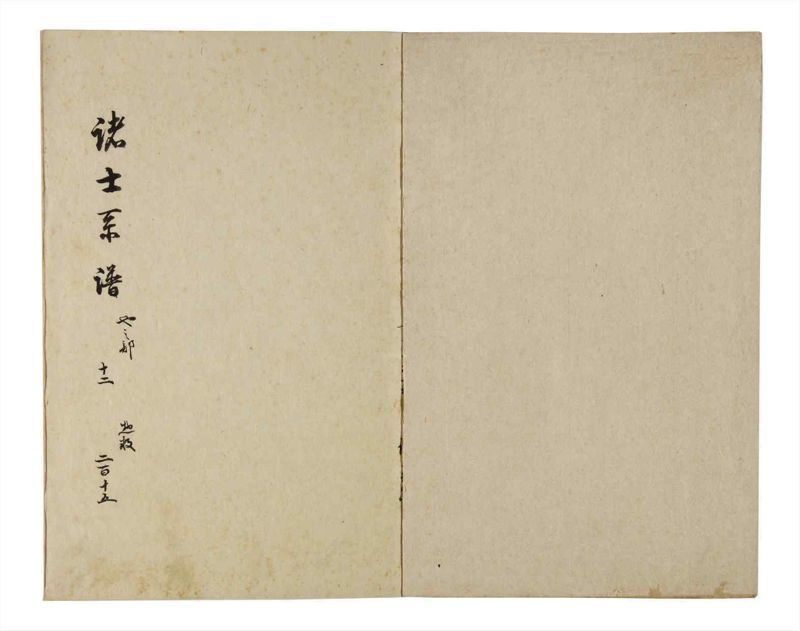 諸士系譜
や之部
十二
惣数
二百十五